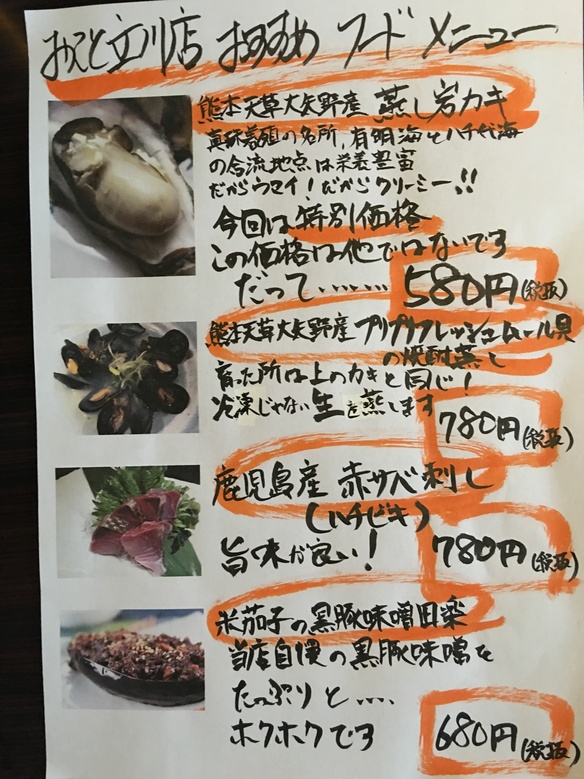 おごと立川店 おすすめ フードメニュー
熊本天草大矢野産 蒸し岩カキ
真珠養殖の名所、有明海と八代海
の合流地点は栄養豊富
だからウマイ!だからクリーミー!!
今回は特別価格
この価格は他ではないです
だって……… 580円(税抜)
熊本天草大矢野産 プリプリフレッシュムール貝
の焼酎蒸し
育った所は上のカキと同じ!
冷凍じゃない生を蒸します
780円(税抜)
鹿児島産 赤サバ刺し
(ハチビキ)
旨味が良い! 780円(税抜)
米茄子の黒豚味噌田楽
当店自慢の黒豚味噌を
たっぷりと……
ホクホクです 680円(税抜)